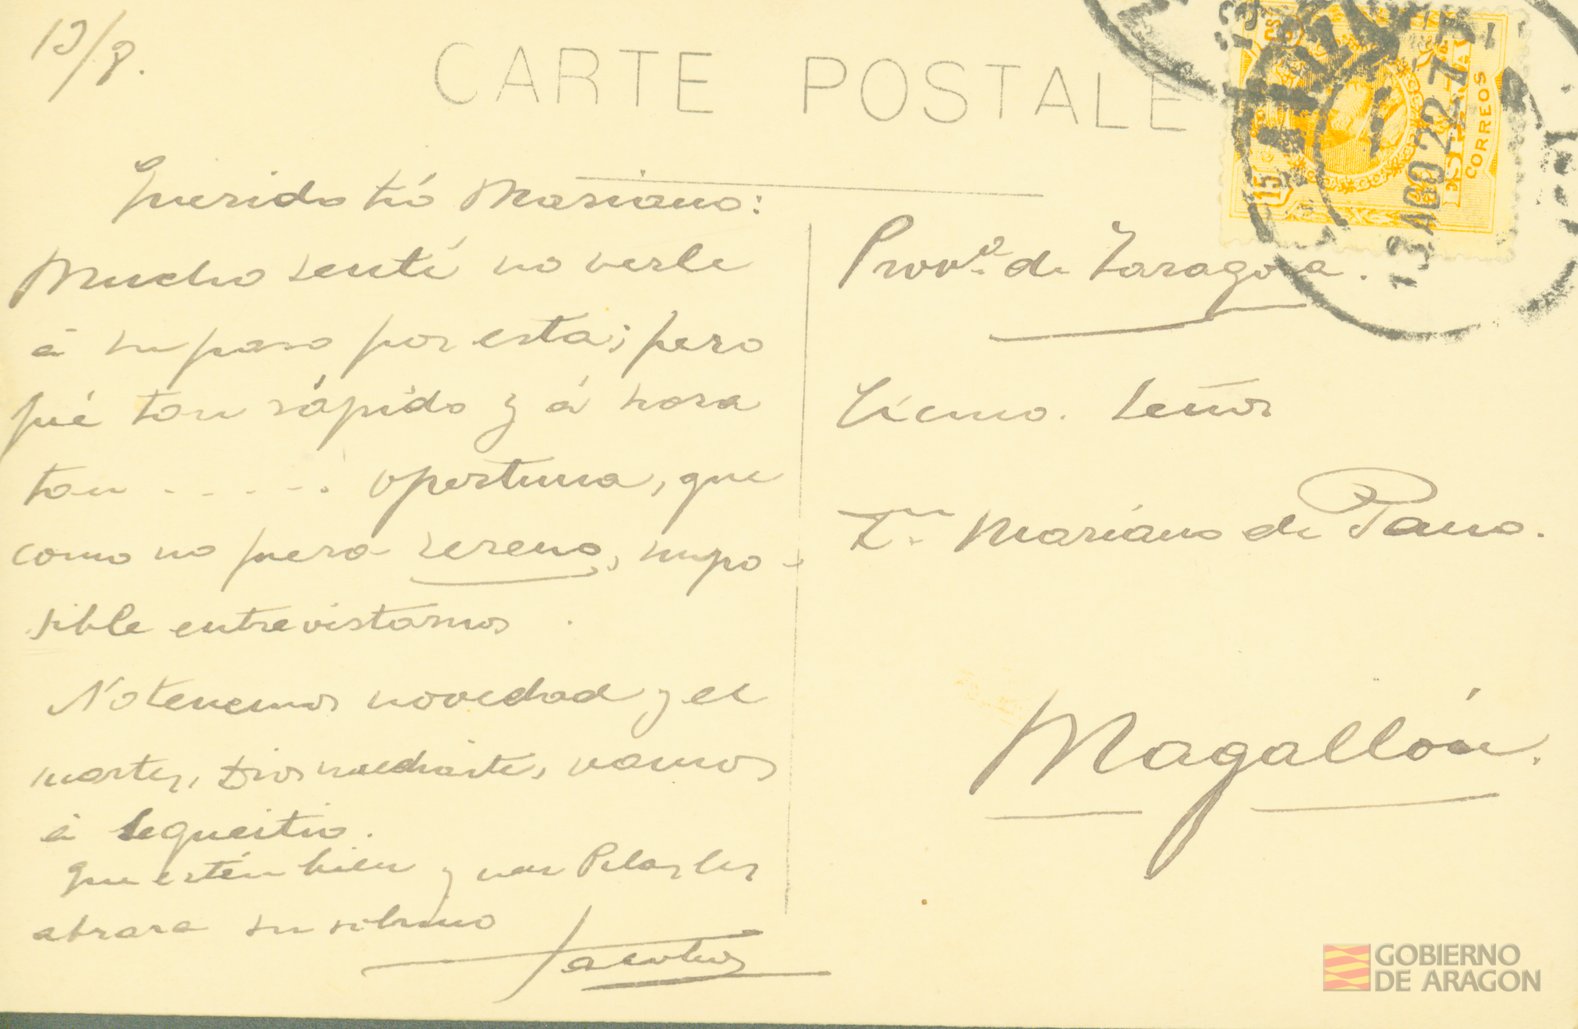 13/8.
CARTE POSTALE
Querido tío Mariano:
Mucho sentí no verle
á su paso por esta; pero
fué tan rápido y á hora
tan ..... oportuna, que
como no fuera sereno, impo-
sible entrevistarnos.
No tenemos novedad y el
martes, Dios mediante, vamos
á Lequeitio.
Que estén bien y con Pilar les
abraza su sobrino
Prov.ª de Zaragoza.
Excmo. Señor
Dn. Mariano de Pano.
Magallón.
15
CORREOS
13 AGO 22
GOBIERNO
DE ARAGON